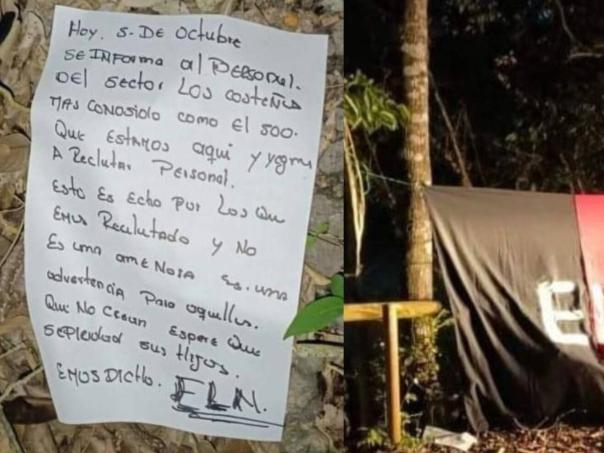 Hoy. 5-DE Octubre
SE INFORMA al PERSONAL.
DEL SECTOR LOS COSTEÑOS
MAS CONOSIDO COMO El 500.
QUE ESTAMOS AQUI Y
A Reclutar Personal.
ESTO ES ECHO POR LOS QUE
EMUS Reclutado y NO
ES UNA AMENOSA ES. UNA
advertencia Para aquellos.
Que NO CREAN ESPERE QUE
SUS HIJOS.
EMOS DICHO. ELN.
E